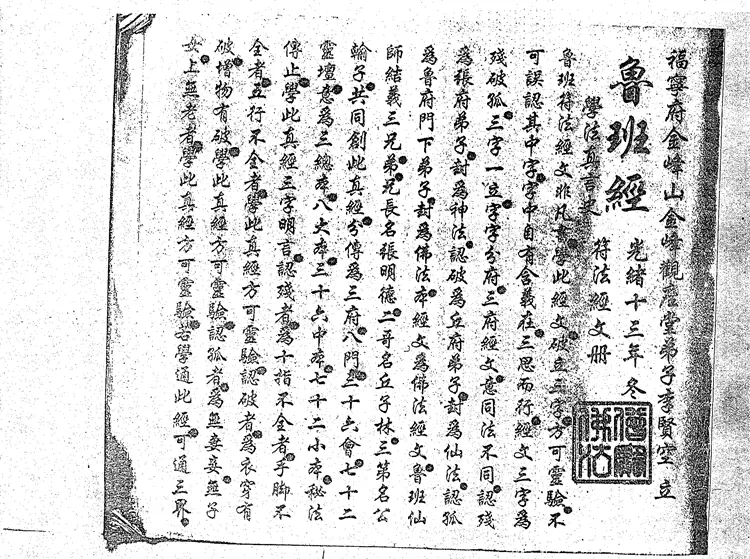 福寧府金峰山金峰觀應堂弟子李賢空立
魯班經 光緒十三年冬
學法真言史 符法經文册
魯班符法經文非凡書學此經文破立三字方可靈驗不
可誤認其中字字中自有含義在三思而行經文三字為
殘破孤三字一立字字分府三府經文意同法不同認殘
為張府弟子封為神法認破為丘府弟子封為仙法認孤
為魯府門下弟子封為佛法本經文為佛法經文魯班仙
師結義三兄弟兄長名張明德二哥名丘子林三第名公
輸子共同創此真經分傳為三府八門三十六會七十二
靈壇意為三總本八大本三十六中本七十二小本秘法
傳止學此真經三字明言認殘者為十指不全者手脚不
全者五行不全者學此真經方可靈驗認破者為衣穿有
破增物有破學此真經方可靈驗認孤者為無妻妾無子
女上無老者學此真經方可靈驗若學通此經可通三界